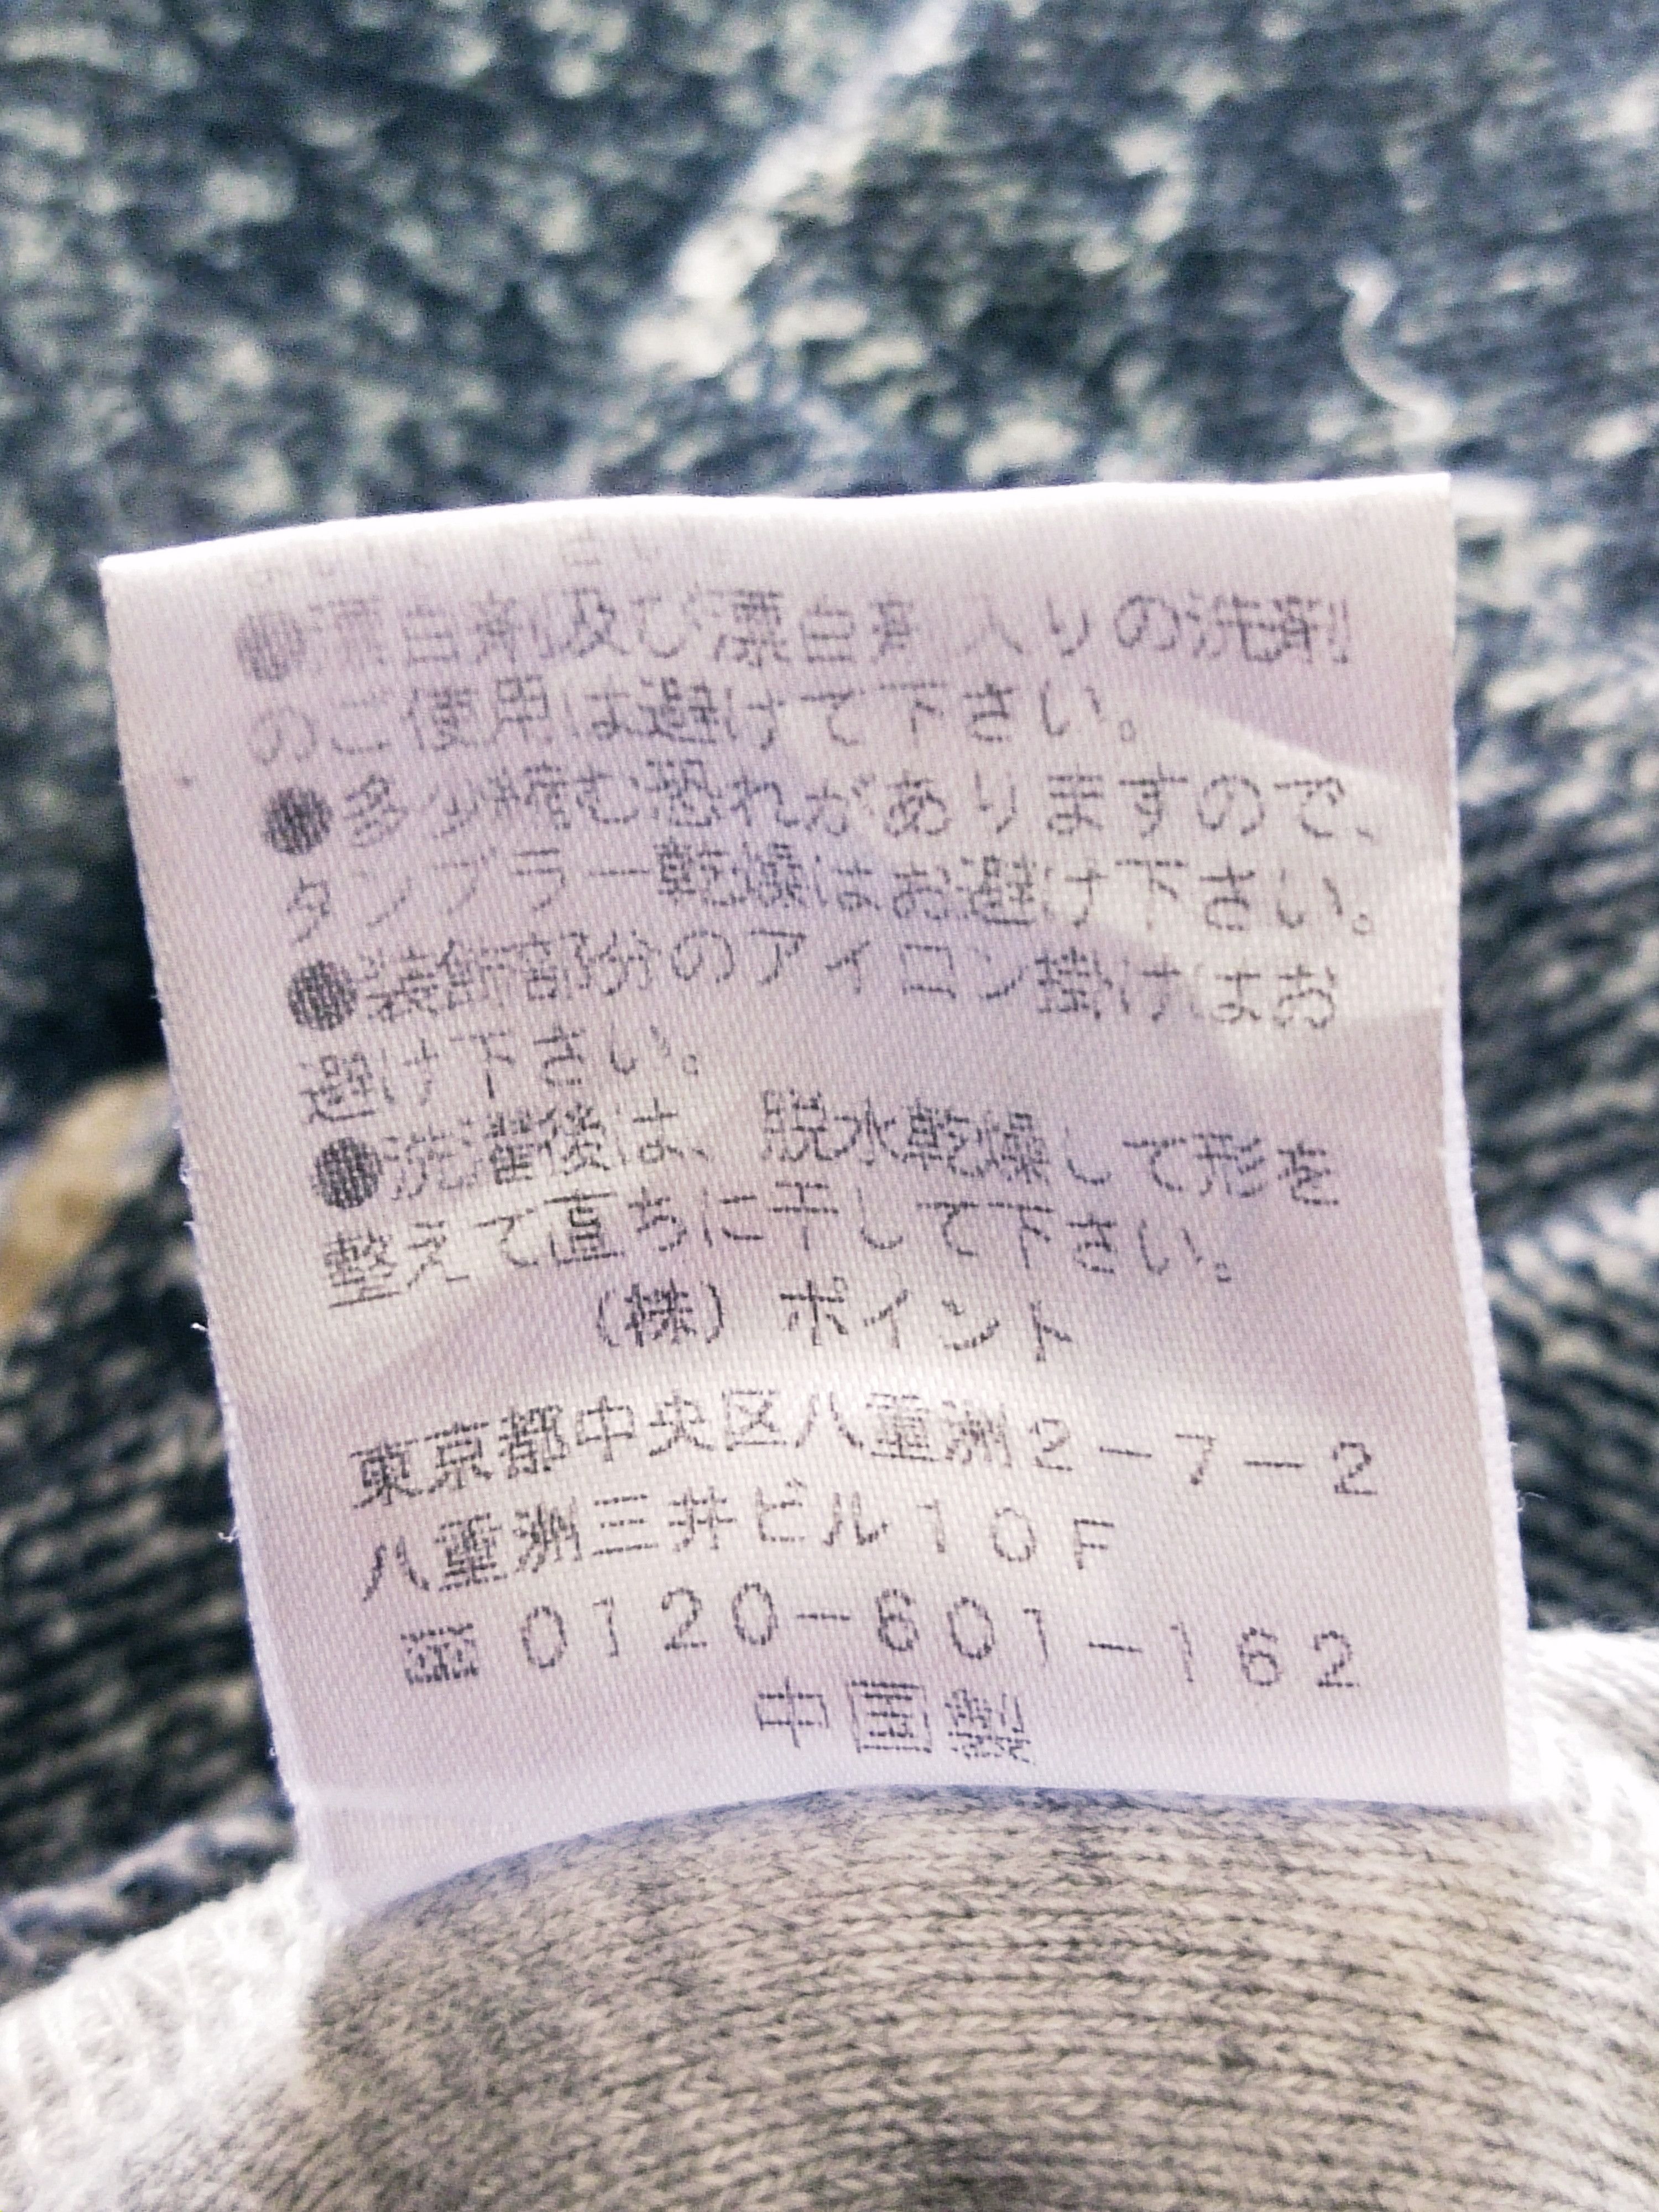 ●漂白剤及び漂白剤入りの洗剤
のご使用は避けて下さい。
●多少縮む恐れがありますので、
タンブラー乾燥はお避け下さい。
●装飾部分のアイロン掛けはお
避け下さい。
●洗濯後は、脱水乾燥して形を
整えて直ちに干して下さい。
(株) ポイント
東京都中央区八重洲2-7-2
八重洲三井ビル10F
0120-601-162
中国製